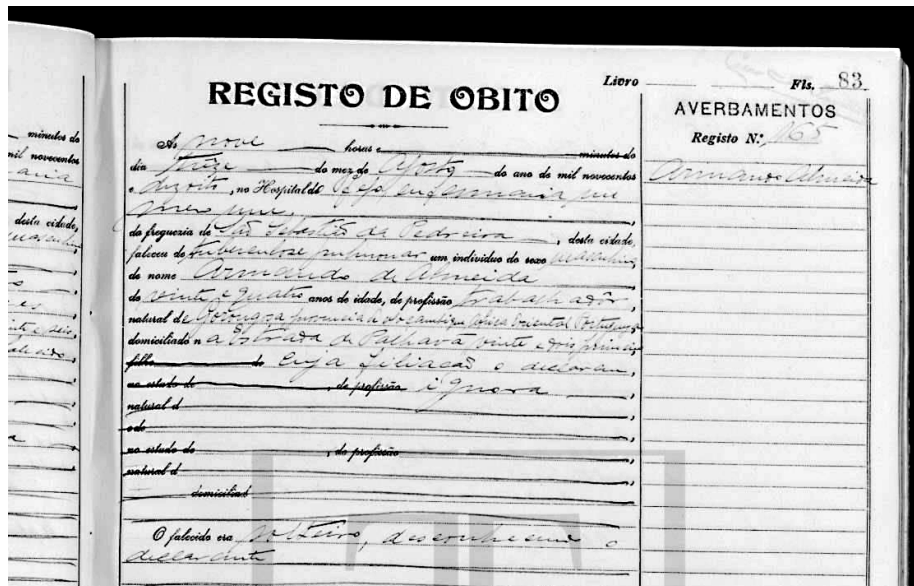 Livro
Fls. 83
REGISTO DE OBITO
AVERBAMENTOS
Registo N.º 165
Armando Almeida
Ás nove horas e minutos do
dia treze do mez de Agosto do ano de mil novecentos
e dezoito, no Hospital do Rego, enfermaria nu
mero um,
da freguezia de São Sebastião da Pedreira, desta cidade,
faleceu de tuberculose pulmonar um individuo do sexo masculino
de nome Armando de Almeida
de vinte e quatro anos de idade, de profissão trabalhador,
natural de provincia de Moçambique Africa Oriental Portuguesa
domiciliado n a Estrada de Palhavã vinte e dois
filho de cuja filiação o declaran,
no estado de , de profissão ignora
natural d
e de
no estado de , de profissão
natural d
domicilia
O falecido era solteiro, desconhecendo o
declarante
minutos do
mil novecentos
aria
desta cidade,
masculin